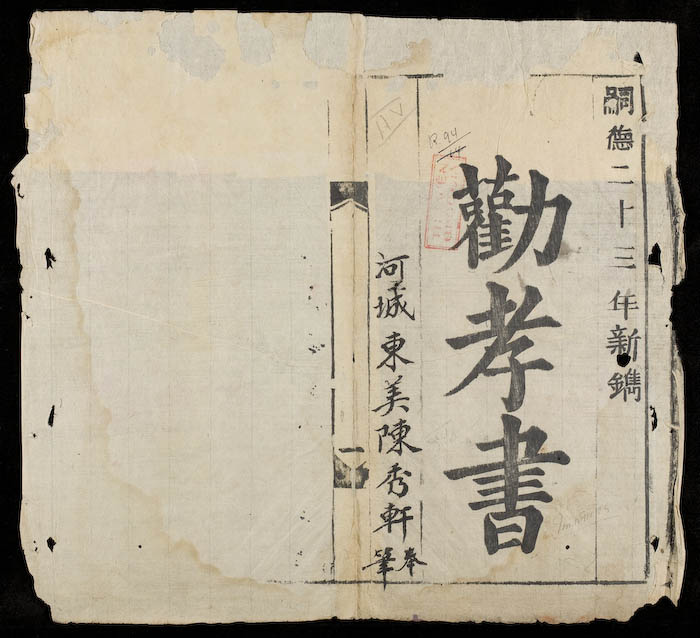 嗣德二十三年新鐫
勸孝書
河城東美陳秀軒奉筆
R.94
14
AV
一